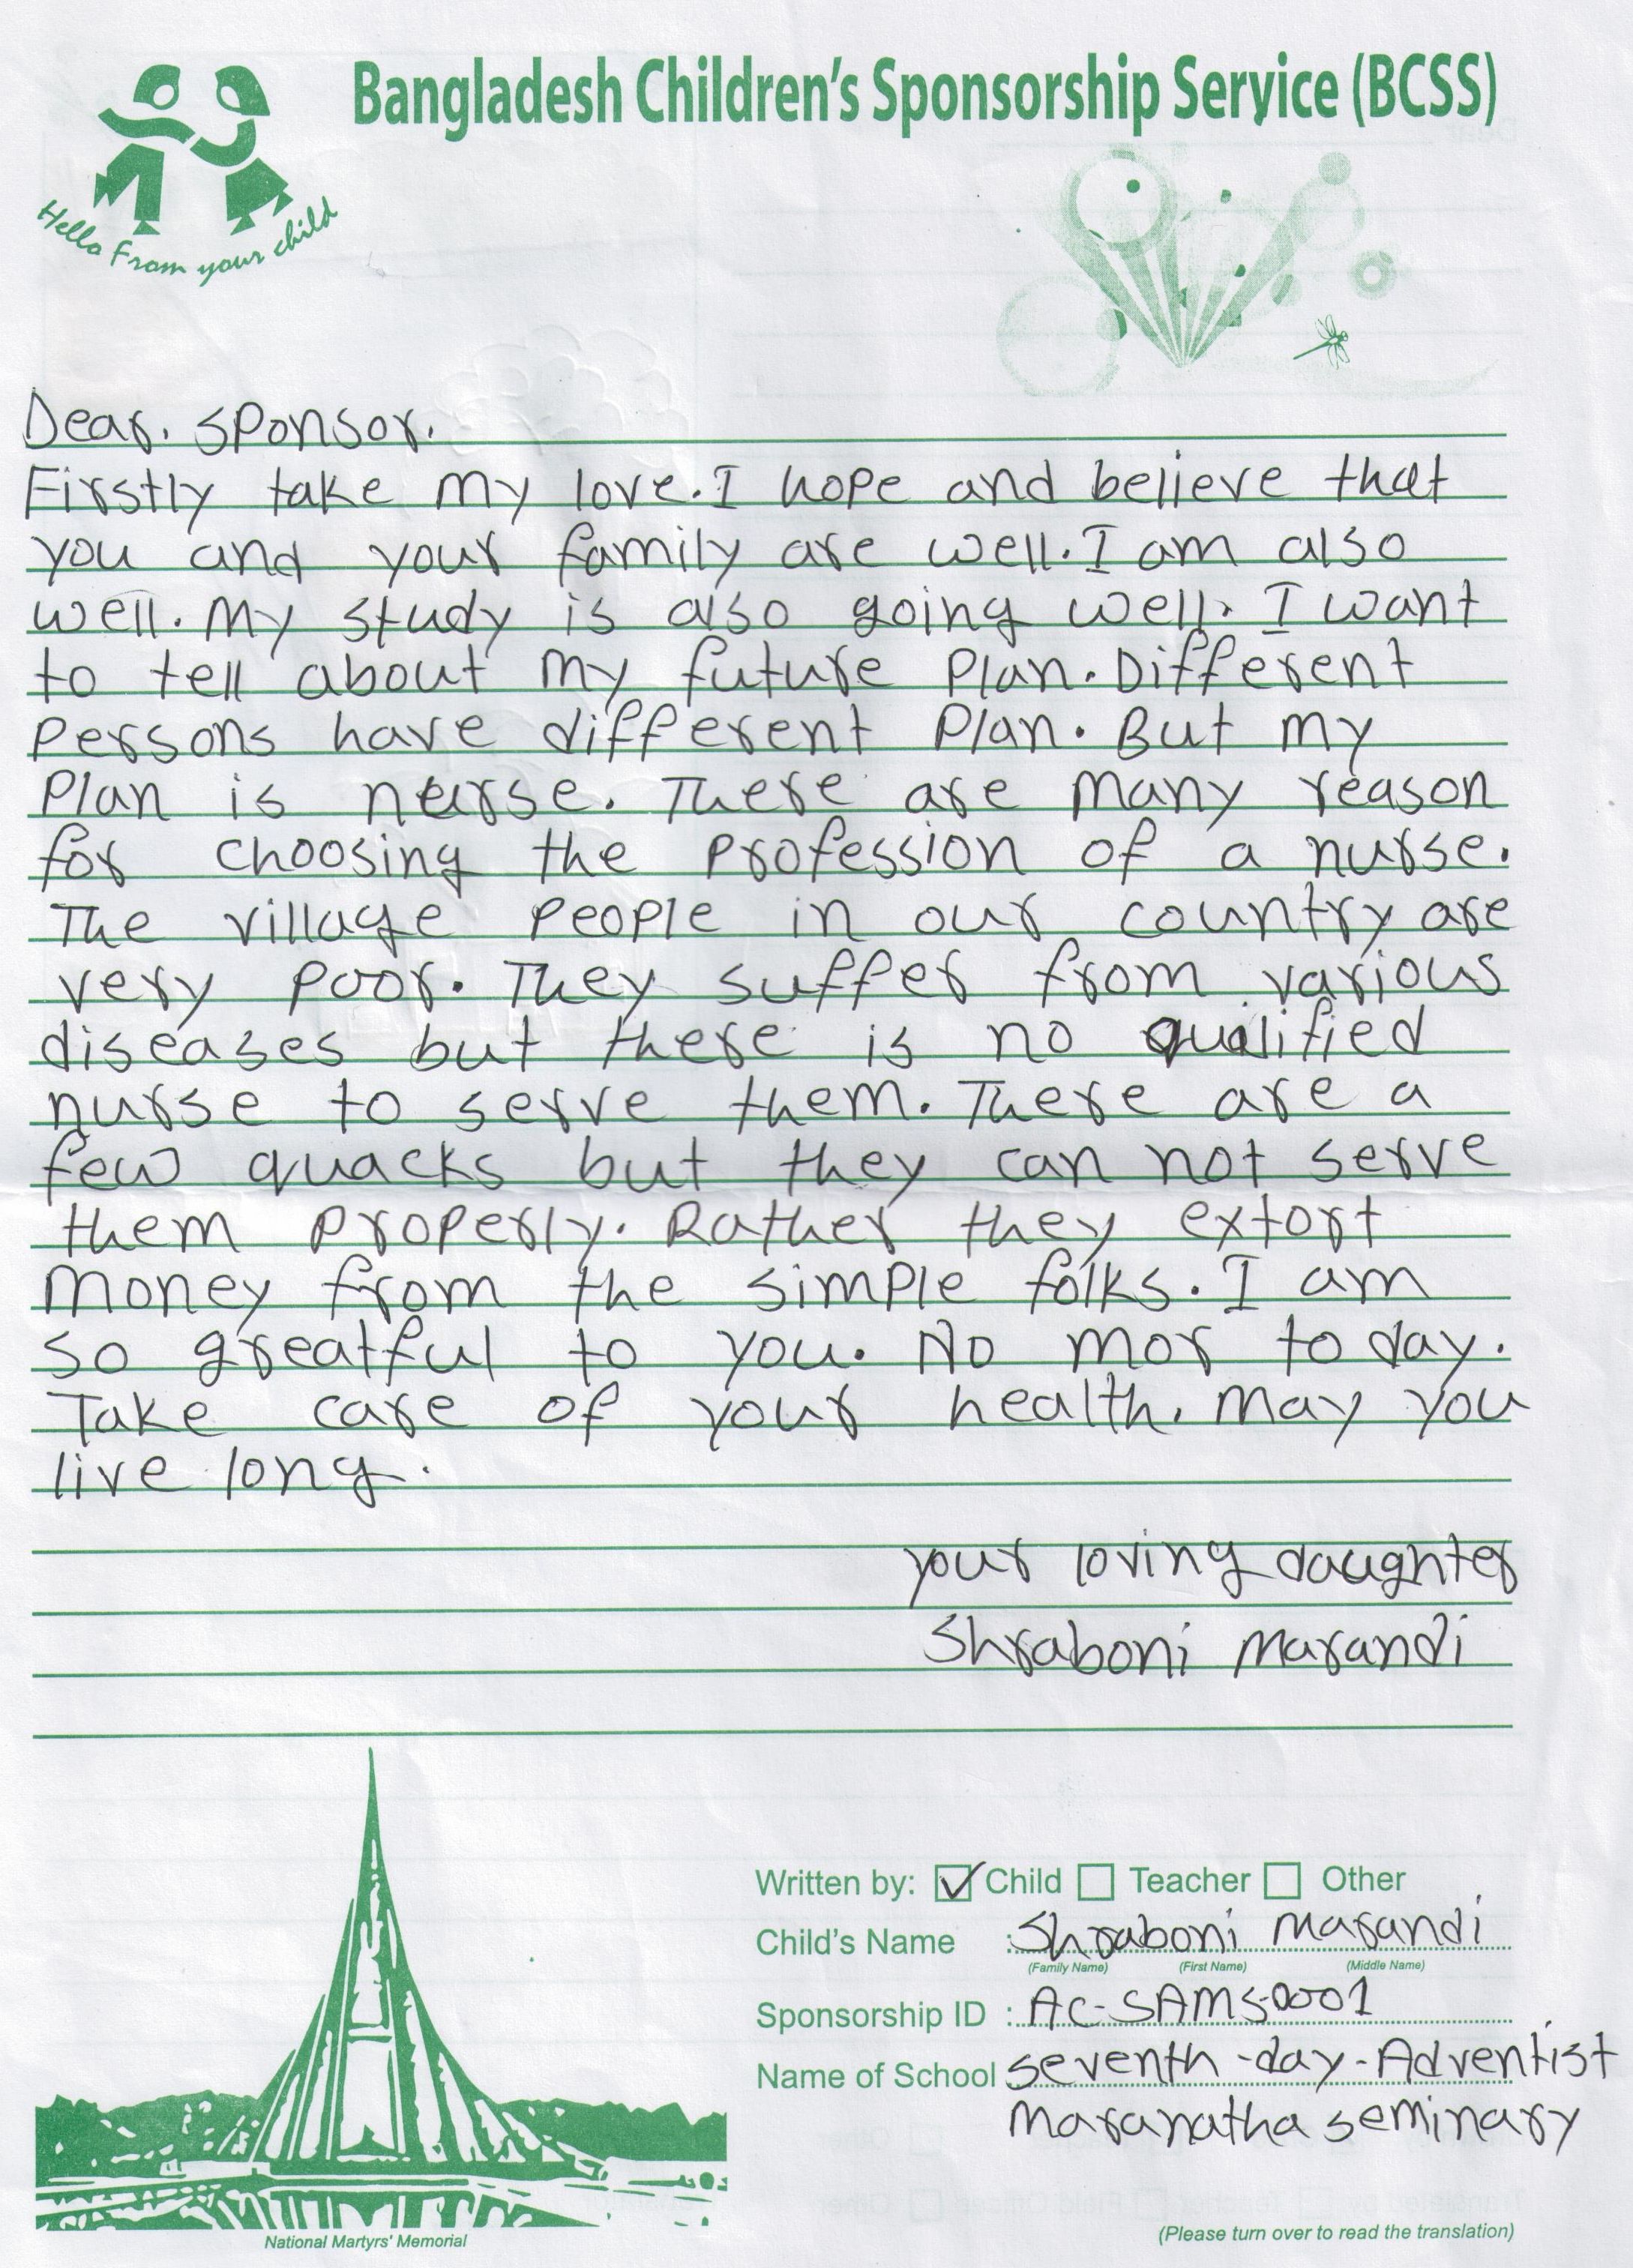 Bangladesh Children's Sponsorship Service (BCSS)
Hello From your child
Dear. sponsor.
Firstly take my love. I hope and believe that
you and your family are well. I am also
well. My study is also going well. I want
to tell about my future plan. Different
persons have different plan. But my
plan is nurse. There are many reason
for choosing the profession of a nurse.
The village people in our country are
very poor. They suffer from various
diseases but there is no qualified
nurse to serve them. There are a
few quacks but they can not serve
them properly. Rather they extort
money from the simple folks. I am
so greatful to you. No mor to day.
Take care of your health. May you
live long.
your loving daughter
Shraboni Marandi
Written by: ☑ Child ☐ Teacher ☐ Other
Child's Name : Shraboni Marandi
(Family Name) (First Name) (Middle Name)
Sponsorship ID : AC-SAMS-0001
Name of School seventh-day-Adventist
Maranatha seminary
National Martyrs' Memorial
(Please turn over to read the translation)